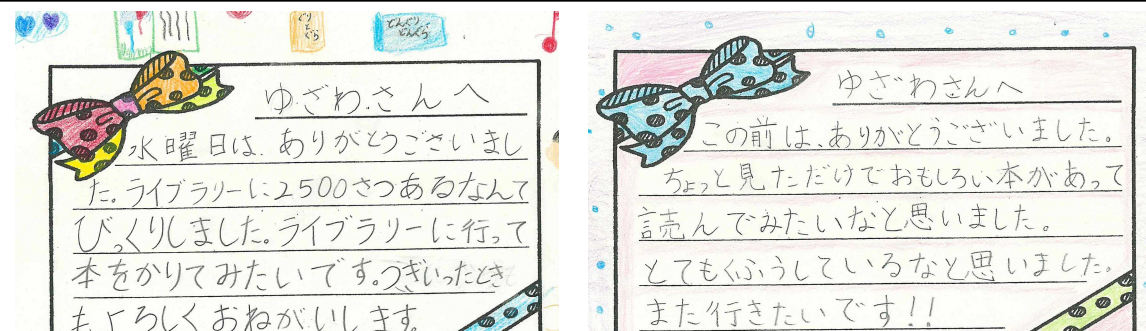 ぐりとぐら
どんぐり
どんぐら
ゆざわさんへ
水曜日は、ありがとうございまし
た。ライブラリーに2500さつあるなんて
びっくりしました。ライブラリーに行って
本をかりてみたいです。つぎいったとき
もよろしくおねがいします。
ゆざわさんへ
この前は、ありがとうございました。
ちょっと見ただけでおもしろい本があって
読んでみたいなと思いました。
とてもくふうしているなと思いました。
また行きたいです!!